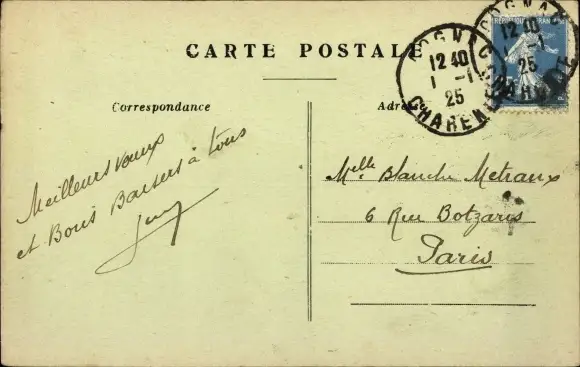 CARTE POSTALE
Correspondance
Meilleurs vœux
et Bons Baisers à tous
Adresse
Melle Blanche Metraux
6 Rue Botzaris
Paris
COGNAC
12 40
1 -1
25
CHARENTE
COGNAC
12 40
1 -1
25
CHARENTE